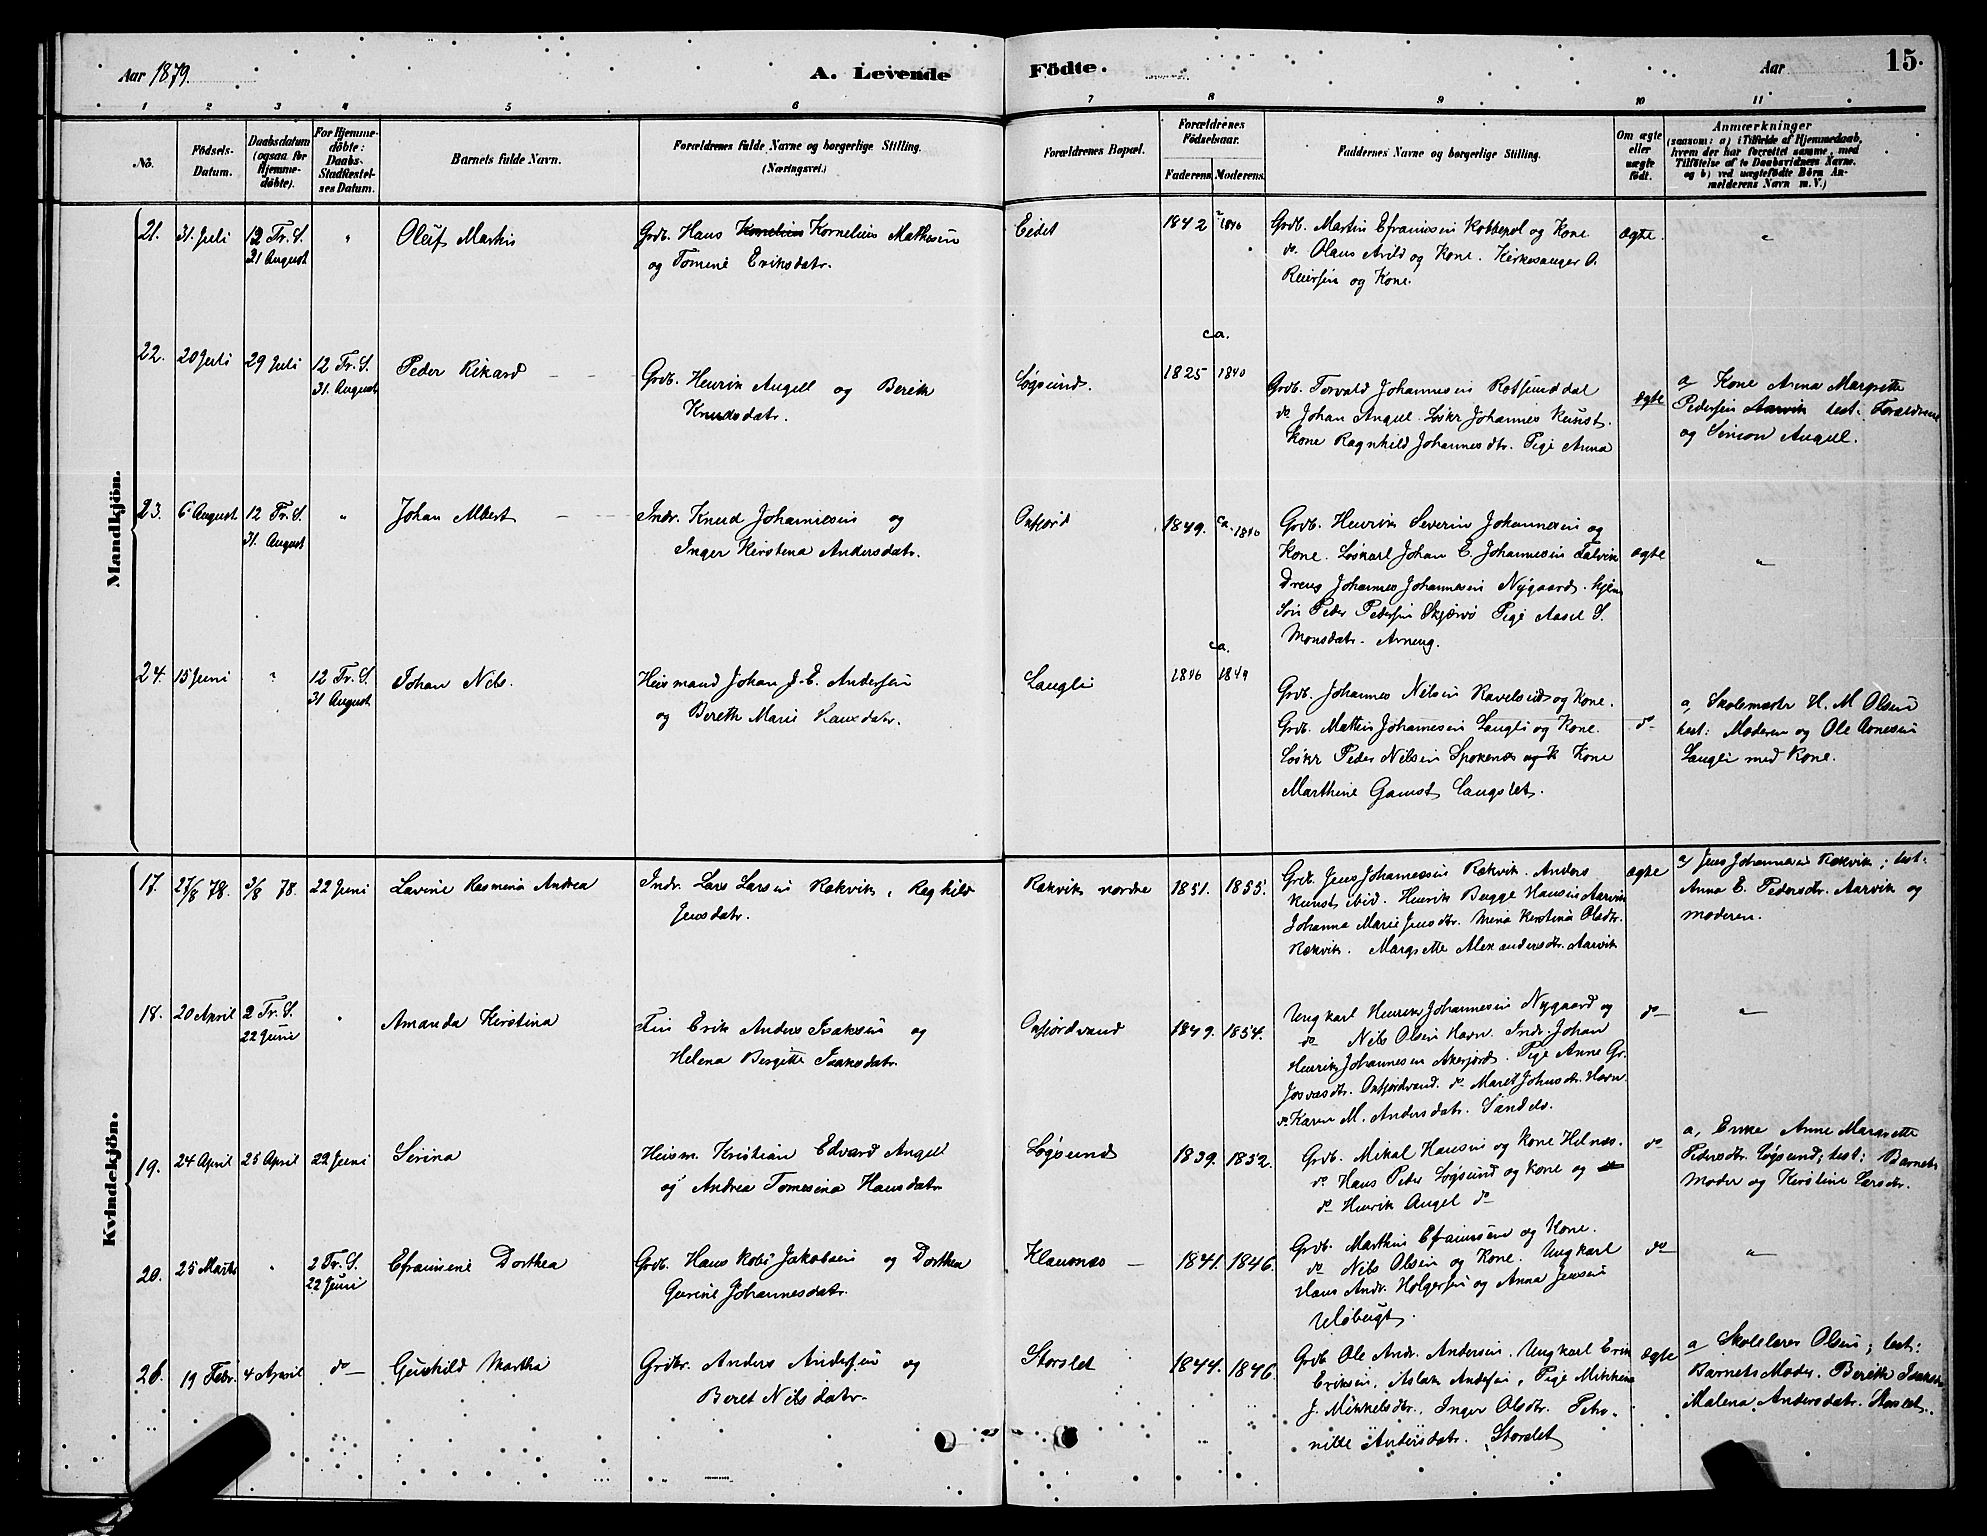 Aar 1879.
A. Levende
Födte.
Aar
15.
1 2 3 4 5 6 7 8 9 10 11
No.
Födsels-
Datum.
Daabsdatum
(ogsaa for
Hjemme-
döbte).
For Hjemme-
döbte:
Daabs-
Stadfæstel-
ses Datum.
Barnets fulde Navn.
Forældrenes fulde Navne og borgerlige Stilling.
(Næringsvei.)
Forældrenes Bopæl.
Forældrenes
Födselsaar.
Faderens. Moderens.
Faddernes Navne og borgerlige Stilling.
Om ægte
eller
uægte
födt.
Anmærkninger
(saasom: a) i Tilfælde af Hjemmedaab,
hvem der har forrettet samme, med
Tilföielse af to Daabsvidners Navne,
og b) ved uægtefödte Börn An-
melderens Navn m. V.)
Mandkjön.
21. 31. Juli
12 Tr. S.
31 August
"
Oluf Martin
Grdb. Hans Kornelius Kornelius Mathesen
og Tomine Eriksdatr.
Eidet
1842 1846
Grdb. Martin Efraimsen Kobbepol og Kone
do. Olaus Arild og Kone. Kirkesanger O.
og Kone.
Ægte.
"
22. 20 Juli 29 Juli
12 Tr. S.
31 August
Peder Rikard
Grdb. Henrik Angell og Berith
Knudsdatr.
Løgsund.
ca.
1825 1840
Grdb. Torvald Johannesen Rotsunddal
do Johan Angel. Løskr Johannes Kunst.
Kone Ragnhild Johannesdtr. Pige Anna
ægte
a, Kone Anna Margrette
Pedersen Aarvik test: Forældrene
og Simon Angel.
23. 6 August
12 Tr. S.
31. August
"
Johan Albert
Indr. Knud Johannesen og
Inger Kirstena Andersdatr.
Oxfjord
1849. ca. 1840
Grdb. Henrik Severin Johannesen og
Kone. Løskarl Johan E. Johannesen Talvik
Dreng Johannes Johannesen Nygaard.
Peder Pedersen Skjærvø Pige Aasel S.
Monsdatr. Arneng.
ægte
"
24. 15 Juni
"
12 Tr. S.
31 August
Johan Nils.
Heismand Johan J. E. Andersen
og Bereth Marie Hansdatr.
Langli
ca.
1846 1849
Grdb. Johannes Nilsen Ravelseid og Kone.
Grdb. Mathis Johannesen Langli og Kone.
Løskr Peder Nilsen Spokenæs og K Kone
Marthine Gamst Langslet.
do
a, Skolemester H. M Olsen
test: Moderen og Ole Arnesen
Langli med Kone.
Kvindekjön.
17. 27/8 78. 3/8 78. 22 Juni
Lavine Rasmina Andrea
Indr. Lars Larsen Rakvik, Ragnild
Jensdatr.
Rakvik nordre
1851. 1855.
Grdb. Jens Johannesen Rakvik. Anders
Kunst ibid. Henrik Bugge Hansen Aarvik
Johanna Marie Jensdtr. Mina Kirstina Olsdtr.
Rakvik. Margrette Alexandersdtr. Aarvik
ægte
a/ Jens Johannesen Rakvik; test:
Anna E. Pedersdtr. Aarvik og
moderen.
18. 20 April
2 Tr. S.
22 Juni
"
Amanda Kirstina
Fin Erik Anders Isaksen og
Helena Birgitte Isaksdatr.
Oxfjordvand
1849. 1854.
Ungkarl Henrik Johannesen Nygaard og
do Nils Olsen Havn. Indr. Johan
Henrik Johannesen Akerjord. Pige Anne Gr.
Josvasdtr. Oxfjordvand. do Maret Johnsdtr. Havn
do Karen M. Andersdatr. Sandelv.
do
"
19. 24 April 25 April 22 Juni
Serina
Heism. Kristian Edvard Angell
og Andrea Tomesina Hansdatr
Løgsund
1839. 1852.
Grdb. Mikal Hansen og Kone Helnæs.
do Hans Peder Løgsund og Kone og
do Henrik Angel do
do
a, Enke Anne Margrette
Pedersdtr. Løgsund; test: Barnets
Moder og Kirstine Larsdtr.
20. 25 Marts
"
2 Tr. S.
22 Juni
Efraimine Dorthea
Grdb. Hans Kobi Jakobsen og Dorthea
Gurine Johannesdatr.
Klaunæs
1841. 1846.
Grdb. Marthin Efraimsen og Kone.
do Nils Olsen og Kone. Ungkarl
Hans Andr. Holgersen og Anna Jensen
Uløbugt.
do
"
19 Febr. 4 April do
Gunhild Martha
Grdbr. Anders Andersen og
Beret Nilsdatr.
Storslet
1844. 1846.
Grdb Ole Andr. Andersen. Ungkarl Erik
Eriksen, Aslak Andersen, Pige Mikkeline
J. Mikkelsdtr., Inger Olsdtr. Petro-
nille Andersdatr. Storslet
ægte
a Skolelærer Olsen; test:
Barnets Moder. Berith Isaksdtr
Malena Andersdatr. Storslet.